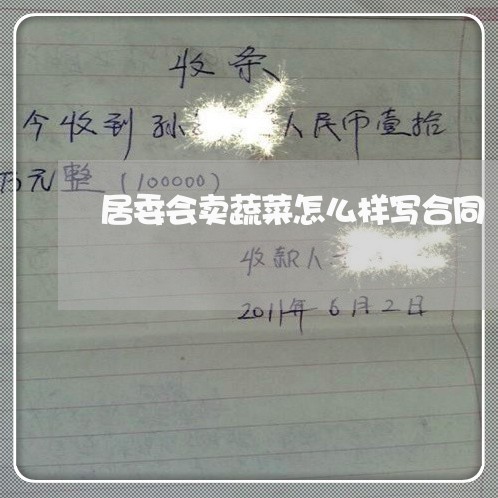 收条
今收到孙 人民币壹拾
万元整（100000）
居委会卖蔬菜怎么样写合同
收款人
2011年6月2日